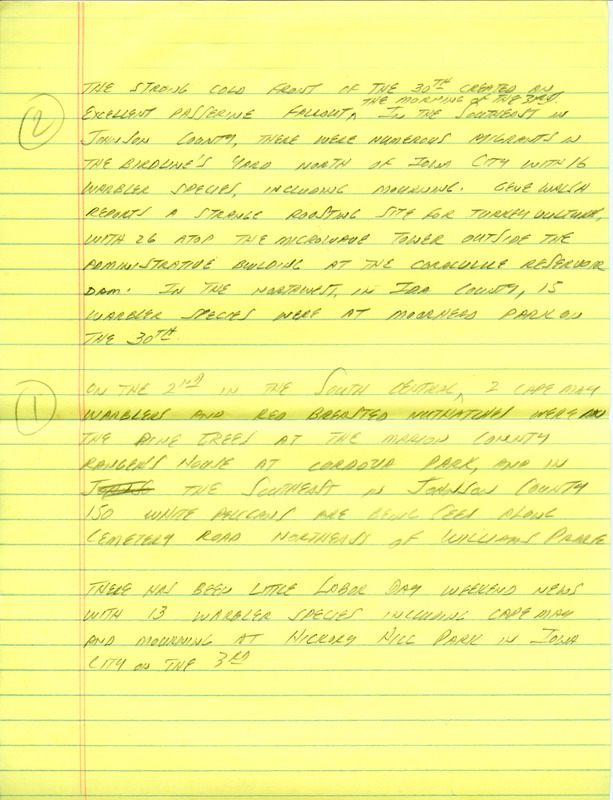 THE STRONG COLD FRONT OF THE 30TH CREATED AN
THE MORNING OF THE 31ST.
EXCELLENT PASSERINE FALLOUT, IN THE SOUTHEAST IN
2
JOHNSON COUNTY, THERE WERE NUMEROUS MIGRANTS IN
THE BIRDLINE'S YARD NORTH OF IOWA CITY WITH 16
WARBLER SPECIES, INCLUDING MOURNING. GENE WALSH
REPORTS A STRANGE ROOSTING SITE FOR TURKEY VULTURE,
WITH 26 ATOP THE MICROWAVE TOWER OUTSIDE THE
ADMINISTRATIVE BUILDING AT THE CORALVILLE RESERVOIR
DAM. IN THE NORTHWEST, IN IDA COUNTY, 15
WARBLER SPECIES WERE AT MOORHEAD PARK ON
THE 30TH.
ON THE 2ND IN THE SOUTH CENTRAL, 2 CAPE MAY
1
WARBLERS AND RED BREASTED NUTHATCHES WERE IN
THE PINE TREES AT THE MARION COUNTY
RANGER'S HOUSE AT CORDOVA PARK, AND IN
THE SOUTHEAST IN JOHNSON COUNTY
150 WHITE PELICANS ARE BEING SEEN ALONG
CEMETERY ROAD NORTHEAST OF WILLIAMS PRAIRIE
THERE HAS BEEN LITTLE LABOR DAY WEEKEND NEWS
WITH 13 WARBLER SPECIES INCLUDING CAPE MAY
AND MOURNING AT HICKORY HILL PARK IN IOWA
CITY ON THE 3RD